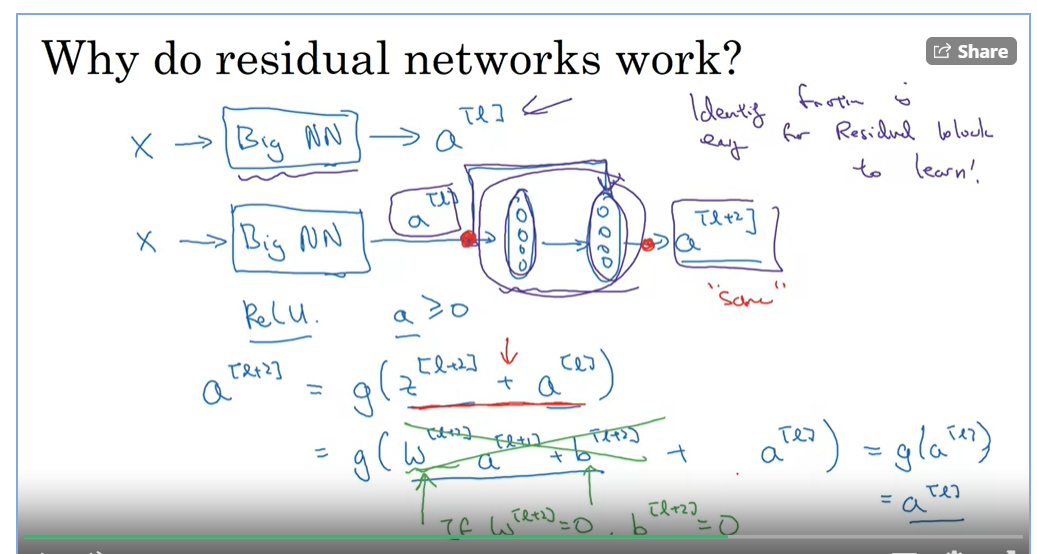 Why do residual networks work?
Share
X → Big NN → a^[l]
Identity function is
easy for Residual block
to learn!
X → Big NN a^[l] → a^[l+2]
"same"
ReLU. a ≥ 0
a^[l+2] = g(z^[l+2] + a^[l])
= g(W^[l+2] a^[l+1] + b^[l+2] + a^[l]) = g(a^[l])
= a^[l]
If W^[l+2] = 0, b^[l+2] = 0